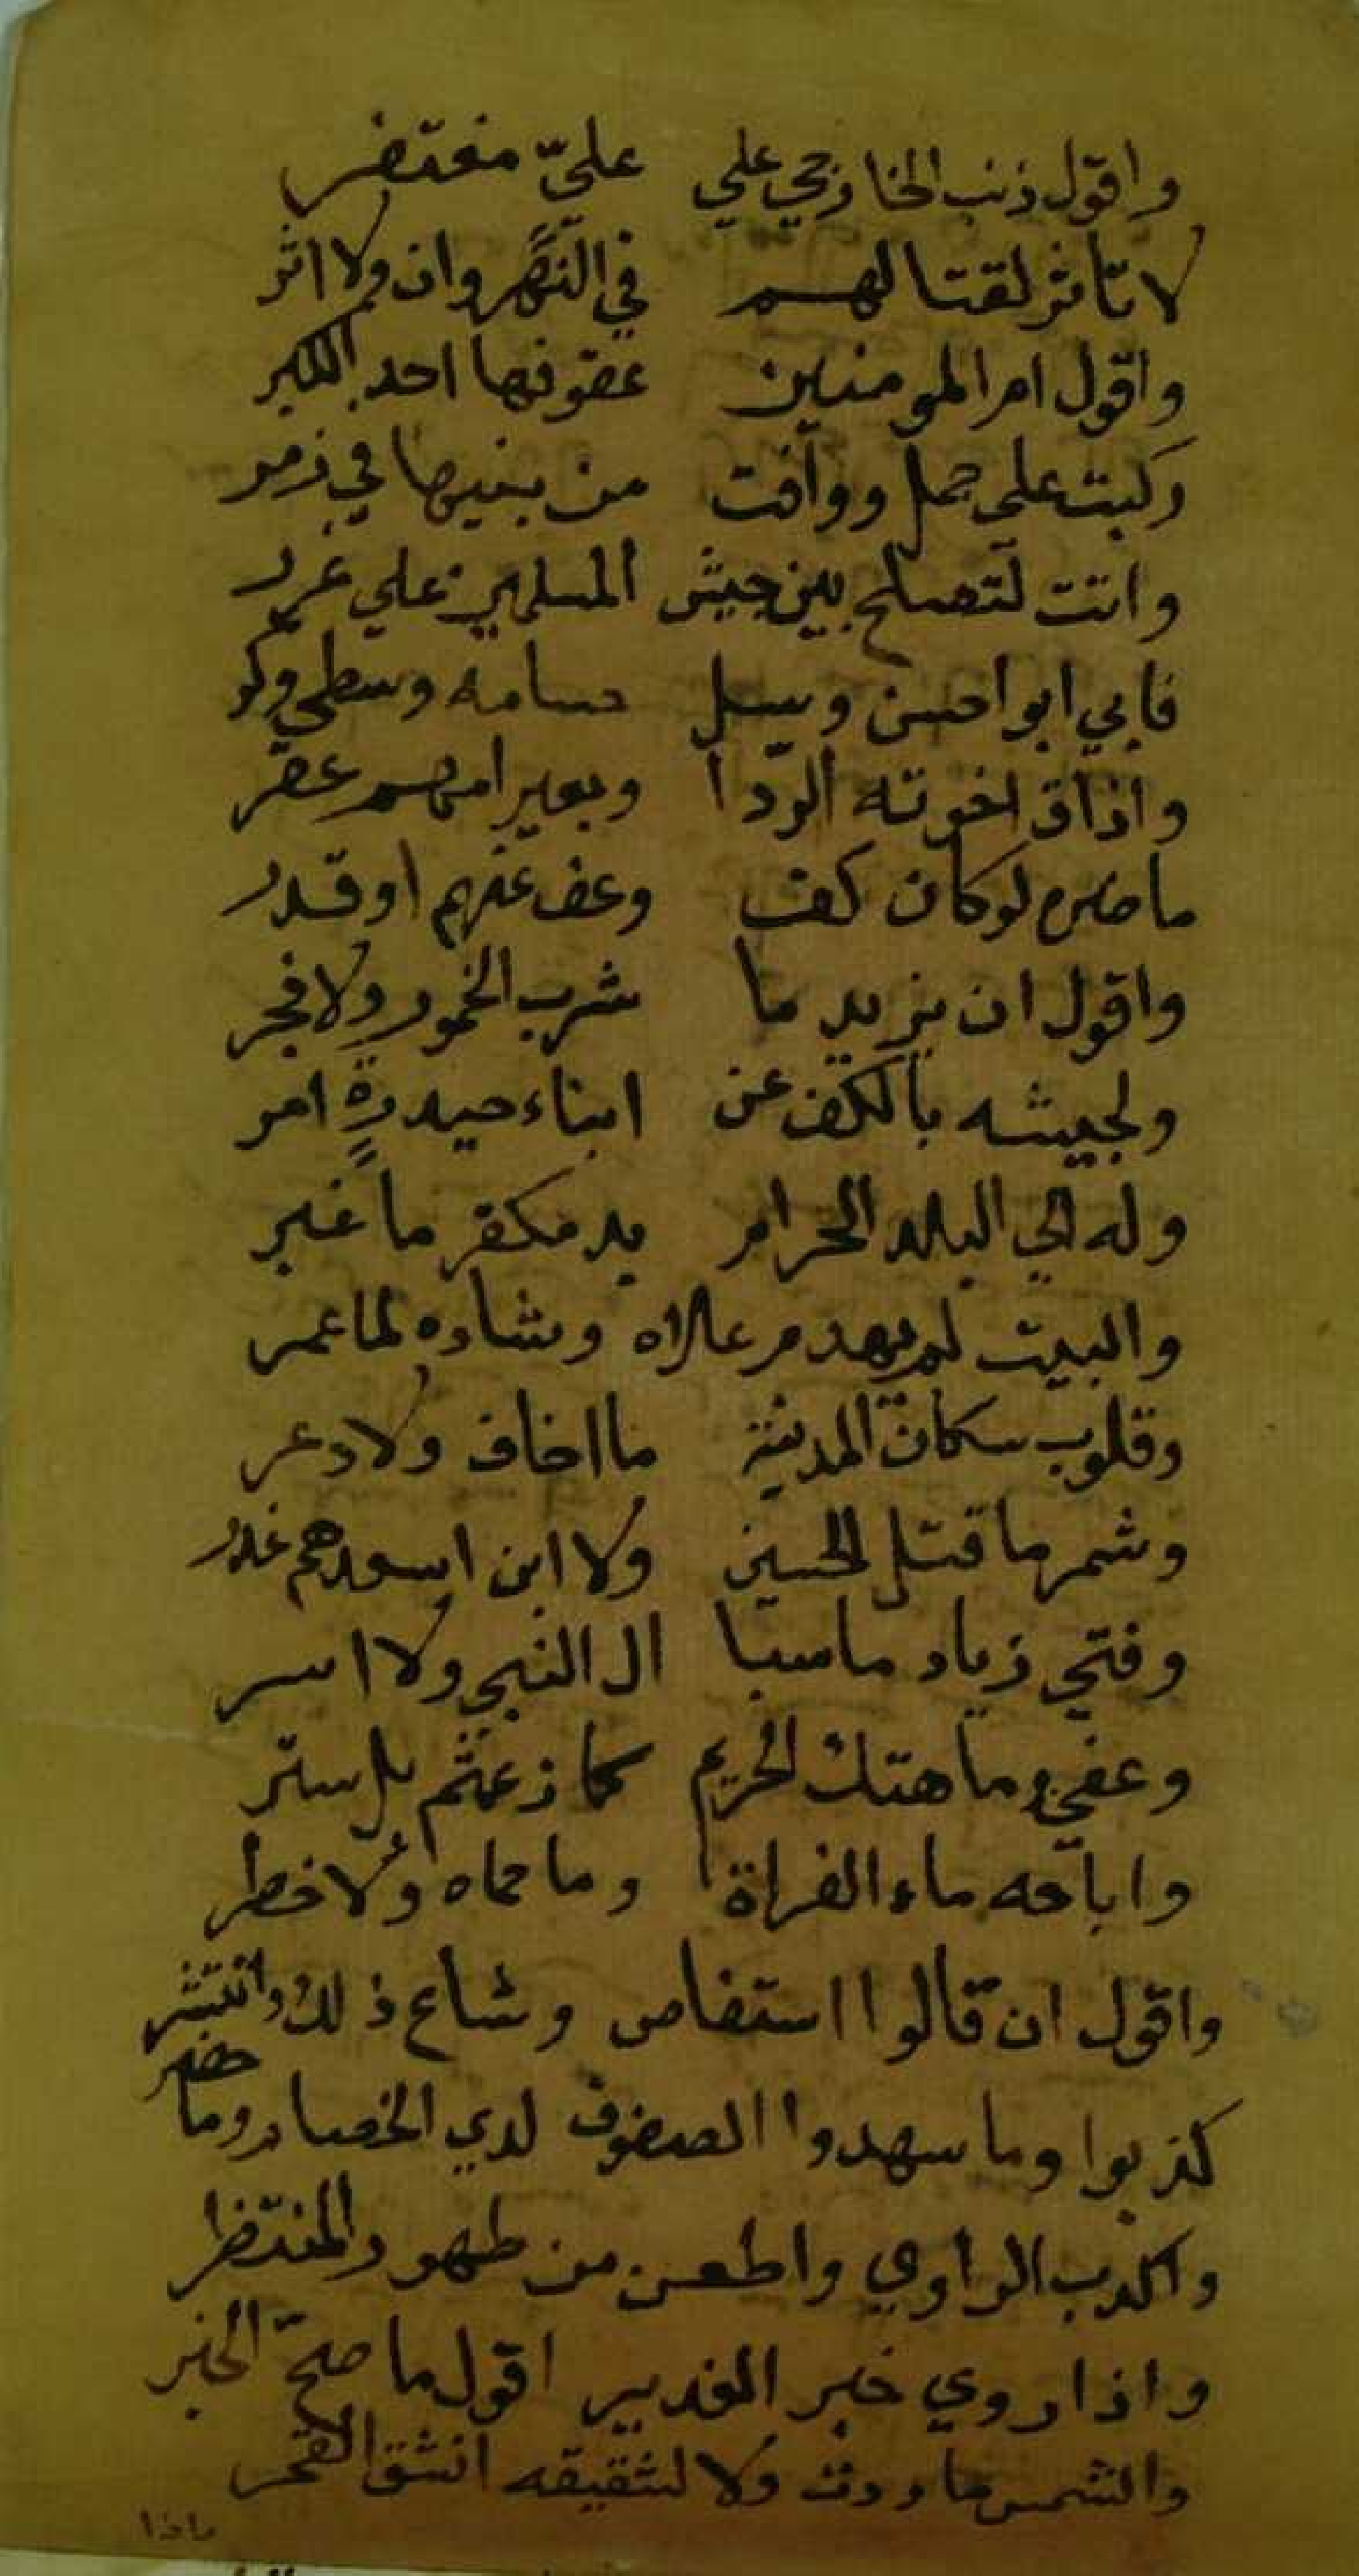 واقول ذنب الخارجي علي عليّ مغتفر
لا تاثر لقتالهم في النهروان ولا اثر
واقول ام المومنين عقوقها احد الكبر
ركبت على جمل ووافت من بنيها في زمر
واتت لتصلح بين جيش المسلمين علي غرر
فابي ابو احسن وسل حسامه وسطي وكر
واذاق اخوته الردا وبعير امهم عقر
ما ضره لو كان كف وعف عنهم او قدر
واقول ان يزيد ما شرب الخمور ولا فجر
ولجيشه بالكف عن ابناء حيدرةٍ امر
وله الي البلد الحرام يد مكفر ما غبر
والبيت لم يهدم علاه وشاده لما عمر
وقلوب سكان المدينة ما اخاف ولا دعر
وشمر ما قتل الحسين ولا ابن اسعدهم غدر
وفتي زياد ما سبا ال النبي ولا اسر
وعفي وما هتك الحريم كما زعمتم بل ستر
واباحه ماء الفراة وما حماه ولا خطر
واقول ان قالوا استفاص وشاع ذلك وانتشر
كذبوا وما سهدوا الصفوف لدي الخصام وما حضر
واكدب الراوي واطعن من طهور المنتظر
واذا روي خبر الغدير اقول ما صحّ الخبر
والشمس ما ردت ولا لشقيقه انشق القمر
واذا